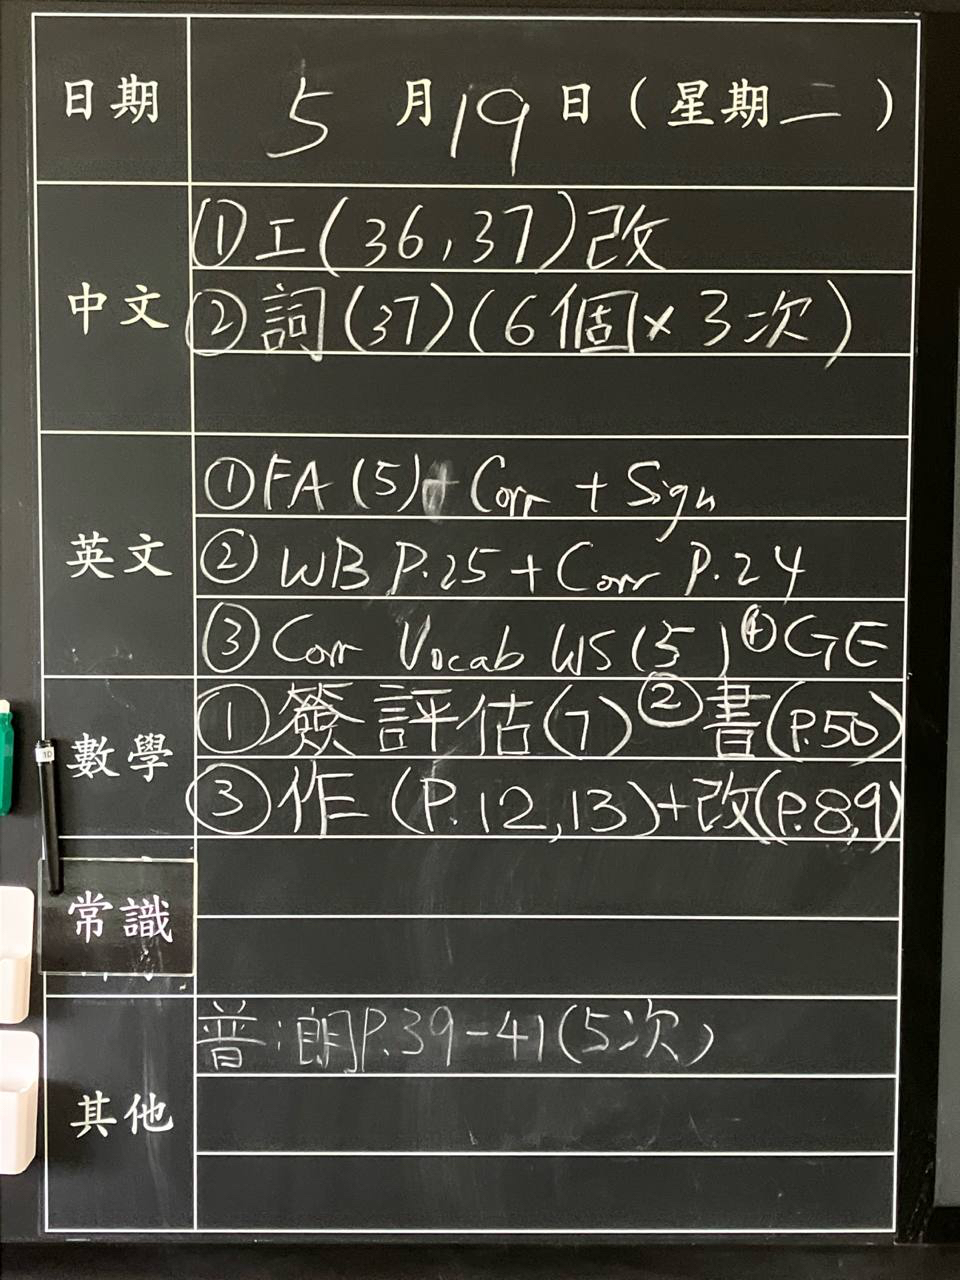 日期 5月19日(星期二)
中文
①工(36,37)改
②詞(37)(6個×3次)
英文
①FA(5)+Corr + Sign
②WB P.25+Corr P.24
③Corr Vocab WS(5) ④GE
數學
①簽評估(7)②書(P.50)
③作(P.12,13)+改(P.8,9)
常識
其他
普:朗P.39-41(5次)